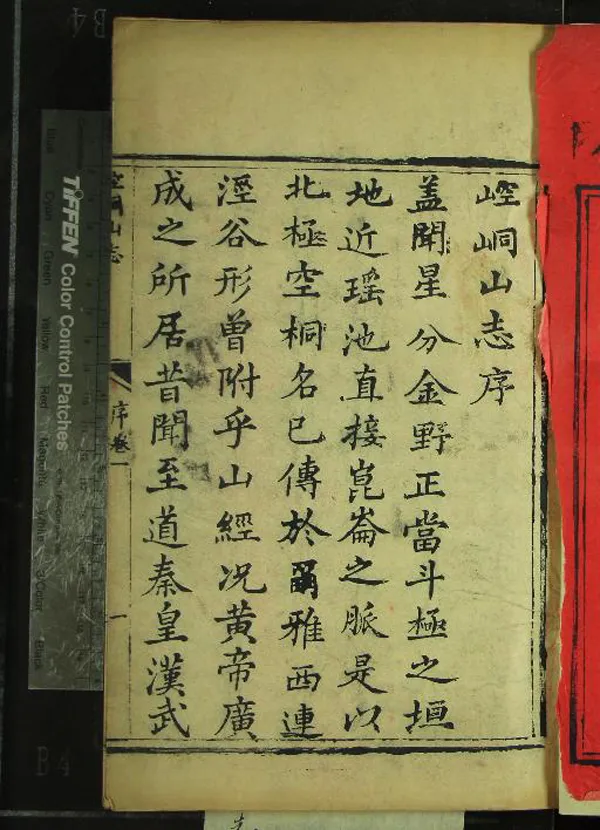 崆峒山志序
盖聞星分金野正當斗極之垣
地近瑶池直接崑崙之脈是以
北極空桐名已傳於爾雅西連
涇谷形曾附乎山經况黄帝廣
成之所居昔聞至道秦皇漢武
空峒山志
序卷一
一
TIFFEN Color Control Patches
Blue
Cyan
Green
Yellow
Red
Magenta
White
3/Color
Black
B4
B4